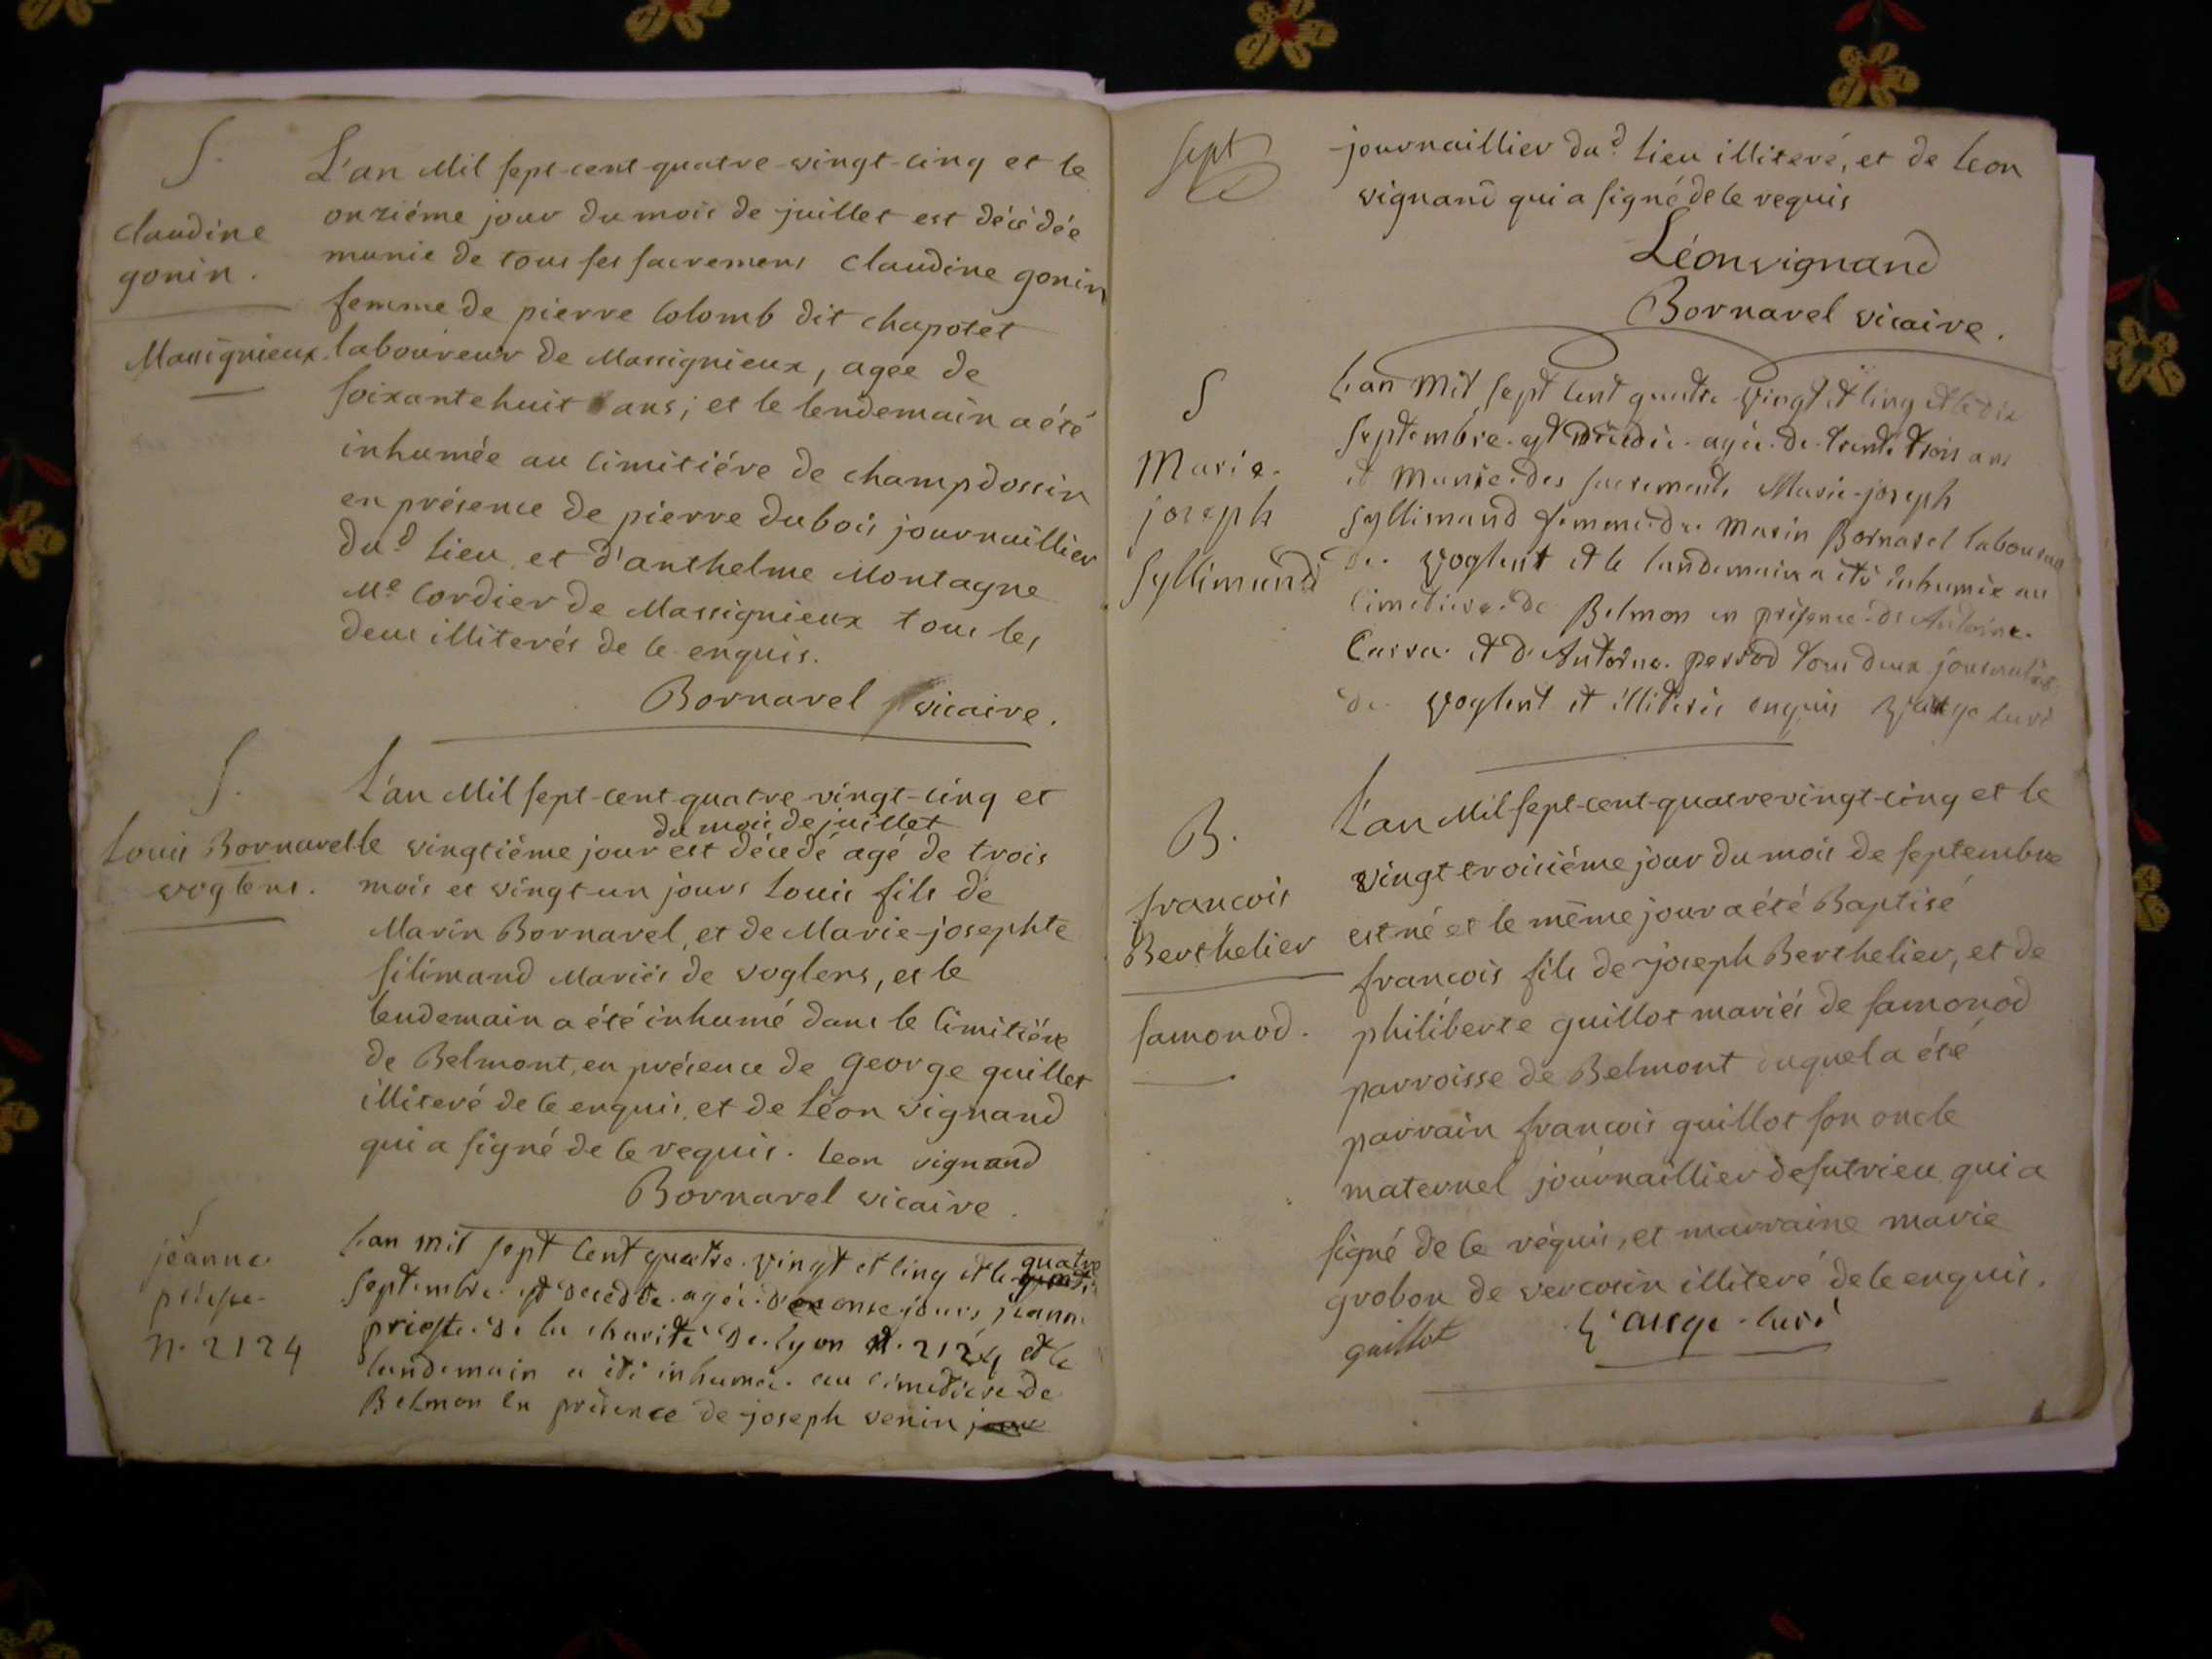 S.
claudine
gonin.
Massignieux.
L'an Mil sept-cent-quatre-vingt-cinq et le
onziéme jour du mois de juillet est décédée
munie de tous ses sacremens Claudine gonin
femme de pierre Colomb dit chapotet
laboureur de Massignieux, agée de
soixante huit ans; et le lendemain a été
inhumée au cimitiére de champdossin
en présence de pierre dubois journaillier
dud. lieu, et d'anthelme Montagne
Me Cordier de Massignieux tous les
deux illiterés de ce enquis.
Bornarel vicaire.
S.
Louis Bornarel
voglens.
L'an Mil sept-cent-quatre-vingt-cinq et
du mois de juillet
le vingtiéme jour est décedé agé de trois
mois et vingt-un jours Louis fils de
Marin Bornarel, et de Marie-josephte
silimand Mariés de voglens, et le
lendemain a été inhumé dans le Cimitiére
de Belmont, en présence de george guillet
illiteré de ce enquis, et de Léon vignand
qui a signé de ce requis. Leon vignand
Bornarel vicaire.
S
jeanne
n. 2124
L'an mil sept Cent quatre vingt et cinq et le quatre
septembre est decedée agée d'onse jours jeanne
prieste de la charité de lyon n. 2124 et le
landemain a été inhumée au cimetiere de
Belmon en présence de joseph venin
sept
journaillier dud. lieu illiteré, et de Leon
vignand qui a signé de ce requis
Léon vignand
Bornarel vicaire.
S
Marie
joseph
Syllimand
L'an mil sept Cent quatre vingt et cinq et le dix
septembre est décédée agée de trente trois ans
et munie des sacrements Marie-joseph
Syllimand femme de Marin Bornarel laboureur
de voglent et le landemain a été inhumée au
cimetiere de Belmon en présence de Antoine
Carra et d'Antoine perrod tous deux journaliers
de voglent et illiterés enquis curé
B.
francois
Berthelier
samonod.
L'an Mil sept-cent-quatre vingt-cinq et le
vingt troisiéme jour du mois de septembre
est né et le même jour a été Baptisé
francois fils de joseph Berthelier, et de
philiberte guillot mariés de samonod
parroisse de Belmont duquel a été
parrain francois guillot son oncle
maternel journaillier de sutrieu qui a
signé de ce réquis, et marraine marie
grobon de vercosin illiteré de ce enquis.
guillot curé